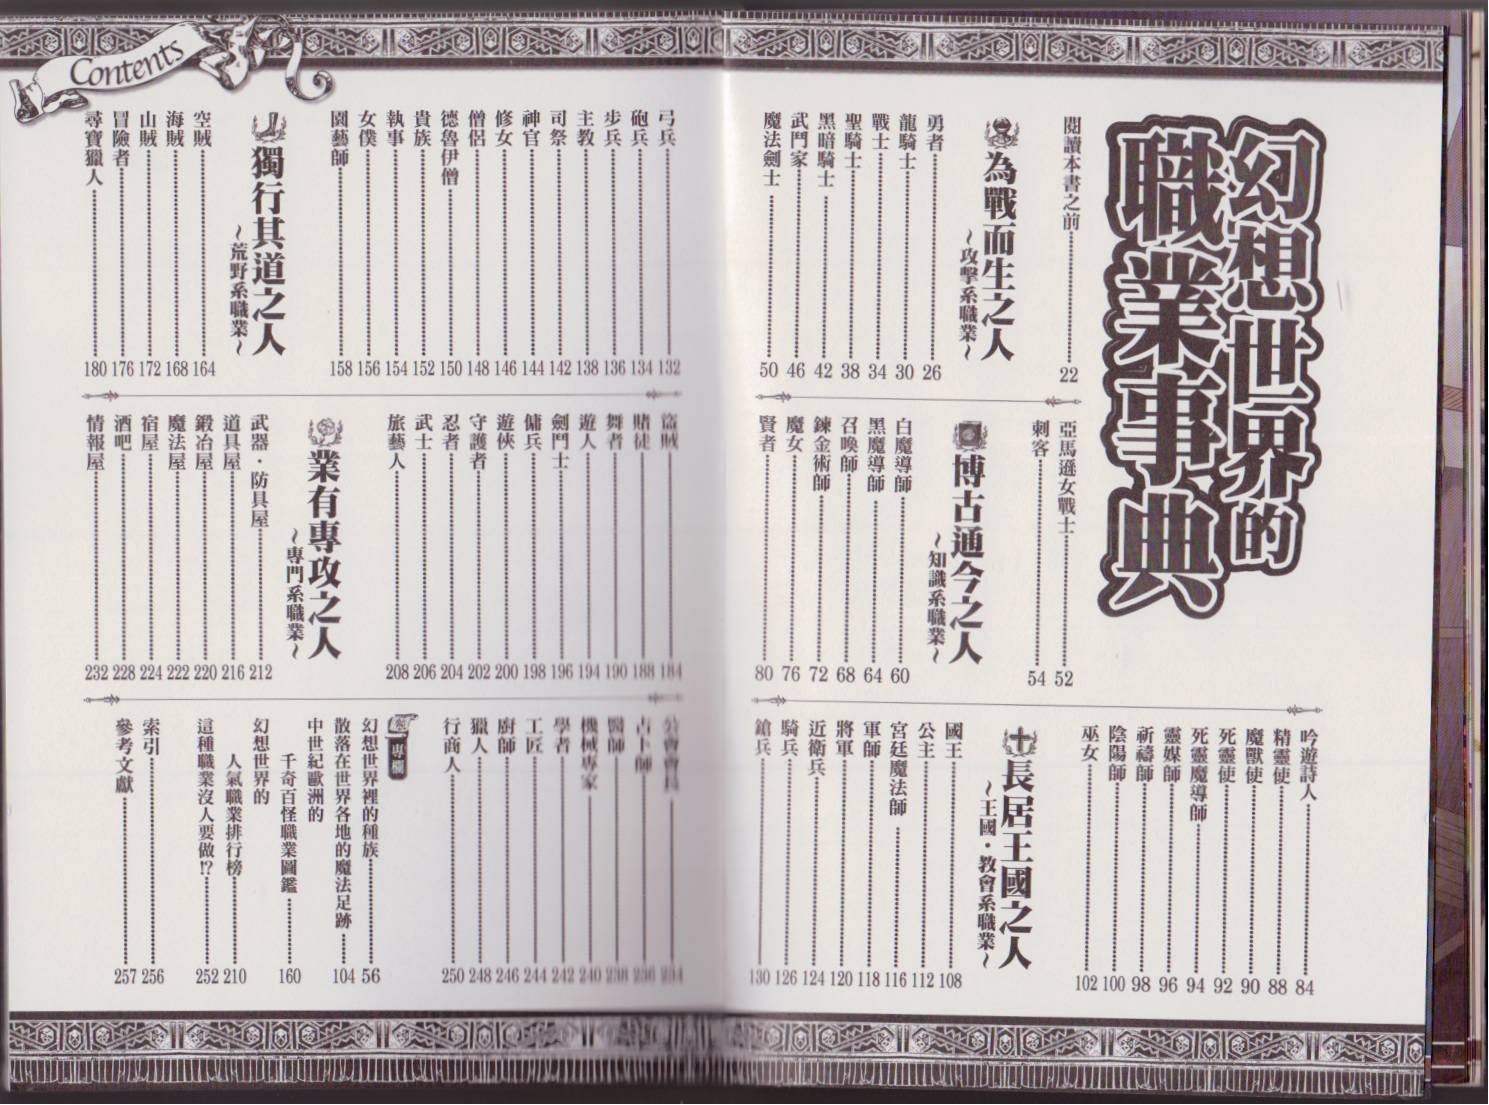 Contents
幻想世界的
職業事典
閱讀本書之前 22
為戰而生之人
～攻擊系職業～
勇者 26
龍騎士 30
戰士 34
聖騎士 38
黑暗騎士 42
武鬥家 46
魔法劍士 50
亞馬遜女戰士 52
刺客 54
博古通今之人
～知識系職業～
白魔導師 60
黑魔導師 64
召喚師 68
鍊金術師 72
魔女 76
賢者 80
吟遊詩人 84
精靈使 88
魔獸使 90
死靈使 92
死靈魔導師 94
靈媒師 96
祈禱師 98
陰陽師 100
巫女 102
長居王國之人
～王國・教會系職業～
國王 108
公主 112
宮廷魔法師 116
軍師 118
將軍 120
近衛兵 124
騎兵 126
鎗兵 130
弓兵 132
砲兵 134
步兵 136
主教 138
司祭 142
神官 144
修女 146
僧侶 148
德魯伊僧 150
貴族 152
執事 154
女僕 156
園藝師 158
獨行其道之人
～荒野系職業～
空賊 164
海賊 168
山賊 172
冒險者 176
尋寶獵人 180
盜賊 184
賭徒 188
舞者 190
遊人 194
劍鬥士 196
傭兵 198
遊俠 200
守護者 202
忍者 204
武士 206
旅藝人 208
業有專攻之人
～專門系職業～
武器・防具屋 212
道具屋 216
鍛冶屋 220
魔法屋 222
宿屋 224
酒吧 228
情報屋 232
公會會長 234
占卜師 236
醫師 238
機械專家 240
學者 242
工匠 244
廚師 246
獵人 248
行商人 250
專欄
幻想世界裡的種族 56
散落在世界各地的魔法足跡 104
中世紀歐洲的
千奇百怪職業圖鑑 160
幻想世界的
人氣職業排行榜 210
這種職業沒人要做!? 252
索引 256
參考文獻 257